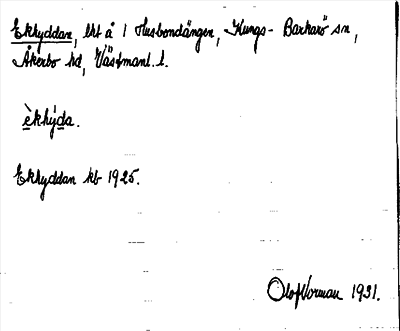 Ekhyddan, lht å 1 Husbondängen, Kungs-Barkarö sn,
Åkerbo hd, Västmanl. l.
èkhýda.
Ekhyddan kb 1925.
Olof Norman 1931.